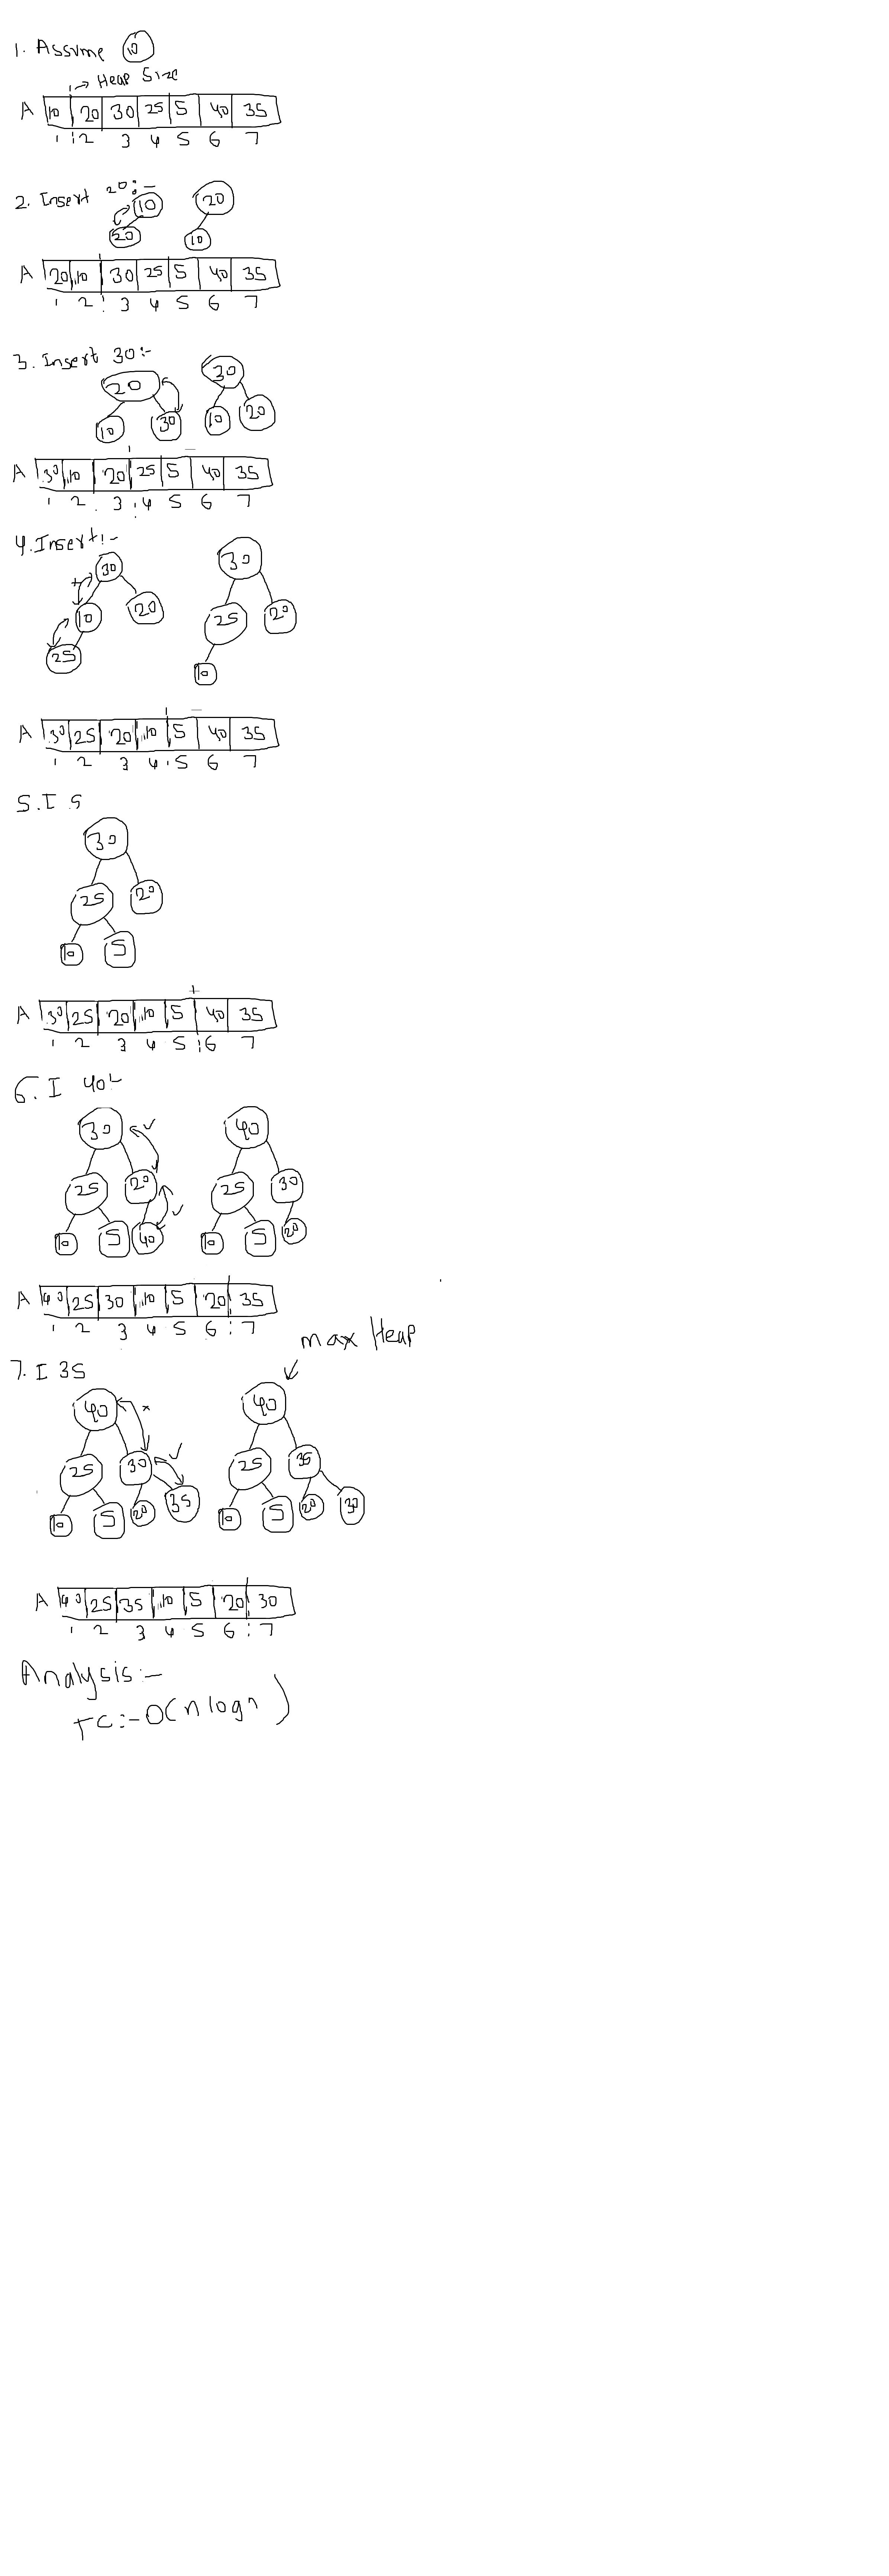 1. Assume 10
→ Heap Size
A 10 20 30 25 5 40 35
1 2 3 4 5 6 7
2. Insert 20:-
10 20
20 10
A 20 10 30 25 5 40 35
1 2 3 4 5 6 7
3. Insert 30:-
20 30
10 30 10 20
A 30 10 20 25 5 40 35
1 2 3 4 5 6 7
4. Insert:-
30 30
10 20 25 20
25 10
A 30 25 20 10 5 40 35
1 2 3 4 5 6 7
5. I 5
30
25 20
10 5
A 30 25 20 10 5 40 35
1 2 3 4 5 6 7
6. I 40
30 40
25 20 25 30
10 5 40 10 5 20
A 40 25 30 10 5 20 35
1 2 3 4 5 6 7
max Heap
7. I 35
40 40
25 30 25 35
10 5 20 35 10 5 20 30
A 40 25 35 10 5 20 30
1 2 3 4 5 6 7
Analysis:-
TC:- O(n logn)